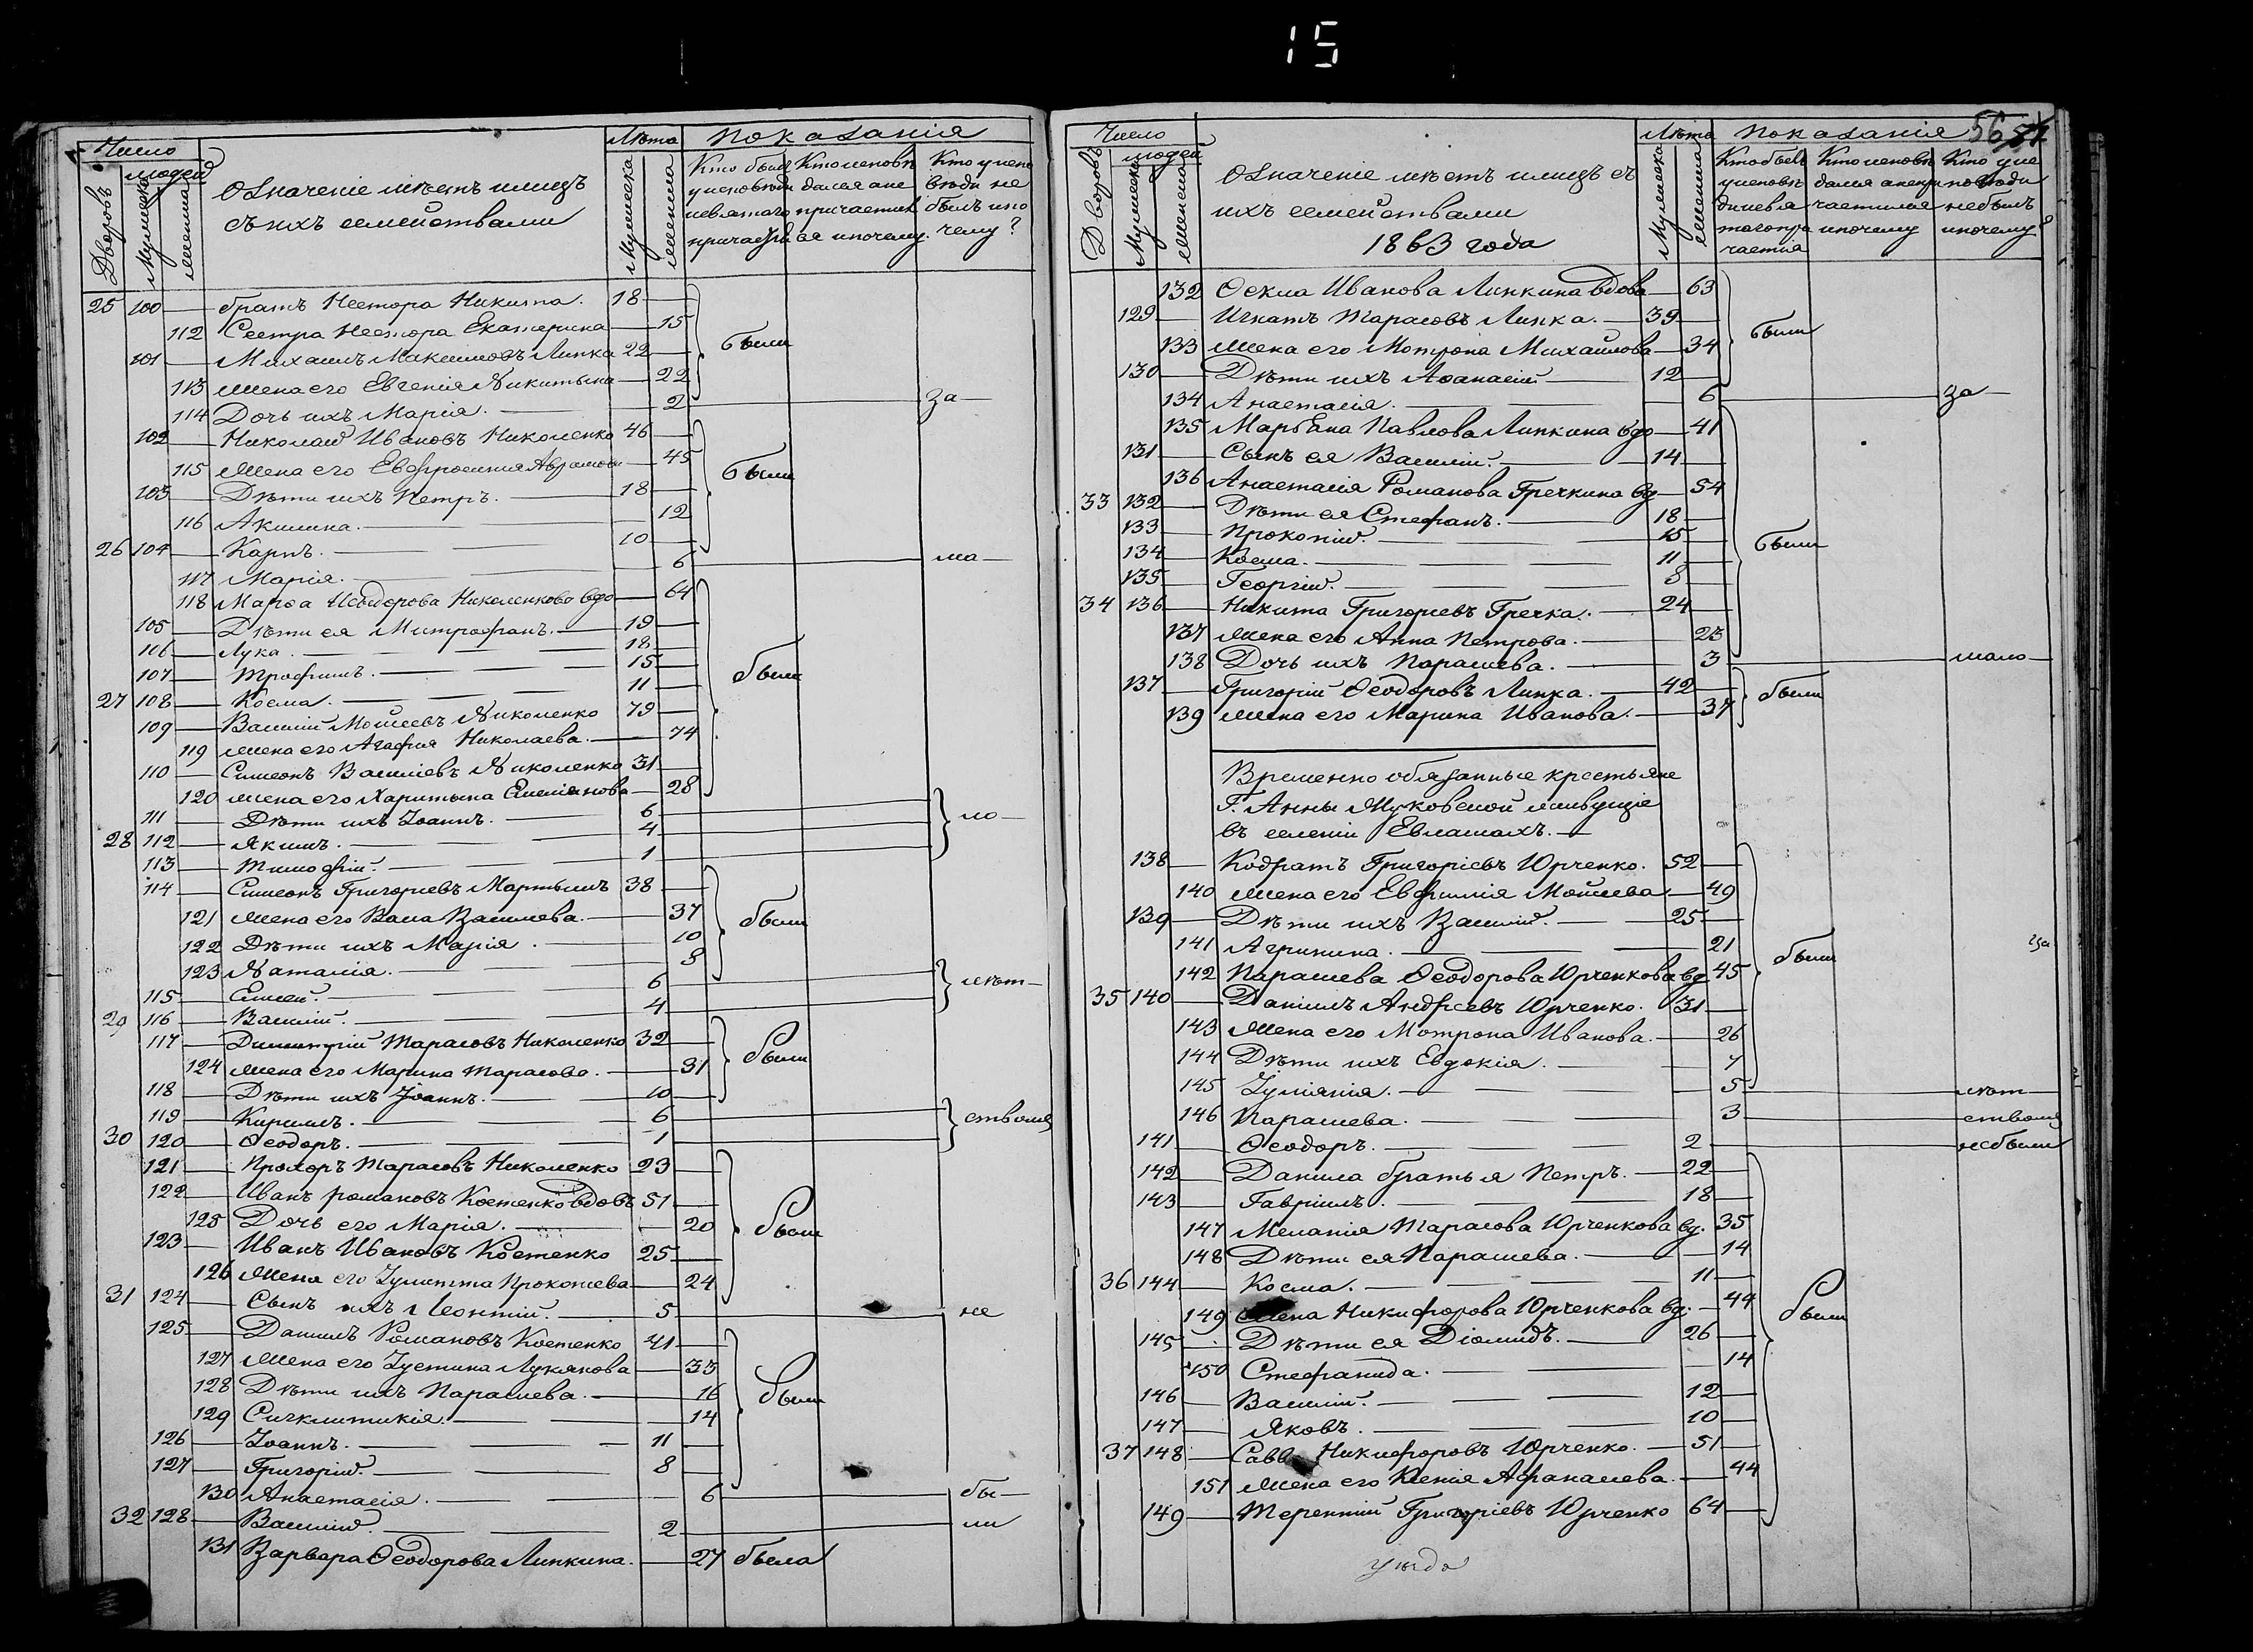 15
Число
людей
Дворовъ
Мужеска
женска
Означеніе мѣстъ и лицъ
съ ихъ семействами
Лѣта
Мужеска
женска
Показанія
Кто былъ
Кто исповѣ
дался а не
причастил
ся и почему.
Кто у испо
вѣди не
былъ и по
чему?
25 100 братъ Нестора Никита. 18
112 Сестра Нестора Екатерина 15
101 Михаилъ Максимовъ Липка 22
были
113 жена его Евгенія Никитына 22
114 Дочь ихъ Марія. 2 за
102 Николай Ивановъ Николенко 46
115 жена его Евфросинія 45
были
103 Дѣти ихъ Петръ. 18
116 Акилина. 12
26 104 Карпъ. 10
117 Марія. 6 ма
118 Марѳа Николенкова вдо 64
105 Дѣти ея Митрофанъ. 19
116 Лука. 18
107 Трофимъ. 15
были
27 108 Косма. 11
109 Василій Моисеевъ Николенко 79
119 жена его Агафія Николаева. 74
110 Симеонъ Василіевъ Николенко 31
120 жена его Харитына Емеліянова 28
111 Дѣти ихъ Іоаннъ. 6
ло
28 112 Якимъ. 4
113 Тимофій. 1
114 Симеонъ Григоріевъ Мартышъ 38
121 жена его Васа Васильева. 37
были
122 Дѣти ихъ Марія. 10
123 Наталія. 8
115 Елисей. 6
лѣт
29 116 Василій. 4
117 Димитрій Тарасовъ Николенко 32
были
124 жена его Марина Тарасова. 31
118 Дѣти ихъ Іоаннъ. 10
119 Кирилъ. 6
ствомъ
30 120 Ѳеодоръ. 1
121 Прохоръ Тарасовъ Николенко 23
122 Иванъ романовъ Костенко вдовъ 51
125 Дочь его Марія. 20
были
123 Иванъ Ивановъ Костенко 25
126 Жена его Іулитта Прокопіева 24
31 124 Сынъ ихъ Леонтій. 5 не
125 Даниилъ Романовъ Костенко 41
127 Жена его Іустина Лукянова 33
128 Дѣти ихъ Парасцева. 16
были
129 Синклитикія. 14
126 Іоаннъ. 11
127 Григорій. 8
130 Анастасія. 6 бы
32 128 Василій. 2 ли
131 Варвара Ѳеодорова Липкина. 27 была
56
Число
людей
Дворовъ
Мужеска
женска
Означеніе мѣстъ и лицъ съ
ихъ семействами
1863 года
Лѣта
Мужеска
женска
Показанія
Кто былъ
у исповѣ
ди и свя
таго при
частія
Кто исповѣ
дался а не при
частился
и почему
Кто у ис
повѣди
не былъ
и почему
132 Ѳекла Иванова Липкина вдова 63
129 Игнатъ Тарасовъ Липка. 39
были
133 жена его Мотрона Михайлова 34
130 Дѣти ихъ Аѳанасій 12
134 Анастасія. 6 за
135 Марьяна Павлова Липкина вдо 41
131 Сынъ ея Василій. 14
136 Анастасія Романова Гречкина вд 54
33 132 Дѣти ея Стефанъ. 18
133 Прокопій. 15
были
134 Косма. 11
135 Георгій. 8
34 136 Никита Григоріевъ Гречка. 24
137 жена его Анна Петрова. 23
138 Дочь ихъ Парасцева. 3 мало
137 Григорій Ѳеодоровъ Липка. 42
были
139 жена его Марина Иванова. 37
Временно обязанные крестьяне
Г. Анны Жуковской живущіе
въ селеніи Евлашахъ.
138 Кодратъ Григоріевъ Юрченко. 52
140 жена его Евфимія Моисеева 49
139 Дѣти ихъ Василій. 25
141 Агрипина. 21
были
142 Парасцева Ѳеодорова Юрченкова вд 45
35 140 Даніилъ Андреевъ Юрченко. 31
143 Жена его Мотрона Иванова. 26
144 Дѣти ихъ Евдокія. 7
145 Іуліянія. 5 лѣт
146 Парасцева. 3 ствомъ
141 Ѳеодоръ. 2 небыли
142 Данила братья Петръ. 22
143 Гавріилъ. 18
147 Меланія Тарасова Юрченкова вд. 35
148 Дѣти ея Парасцева. 14
36 144 Косма. 11
были
149 Никифорова Юрченкова вд. 44
145 Дѣти ея Діомидъ. 26
150 Стефанида. 14
146 Василій. 12
147 Яковъ. 10
37 148 Савва Никифоровъ Юрченко. 51
151 жена его Ксенія Афанасіева. 44
149 Терентій Григоріевъ Юрченко 64